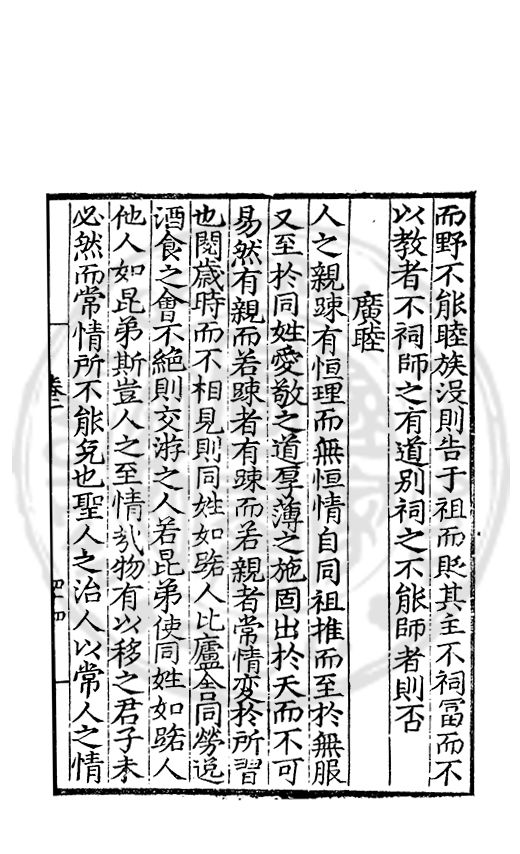 而野不能睦族沒則告于祖而貶其主不祠冨而不
以教者不祠師之有道別祠之不能師者則否
廣睦
人之親踈有恒理而無恒情自同祖推而至於無服
又至於同姓愛敬之道厚薄之施固出於天而不可
易然有親而若踈者有踈而若親者常情變於所習
也閱歲時而不相見則同姓如路人比廬舍同勞逸
酒食之會不絕則交游之人若昆弟使同姓如路人
他人如昆弟斯豈人之至情哉物有以移之君子未
必然而常情所不能免也聖人之治人以常人之情
卷一
四十四